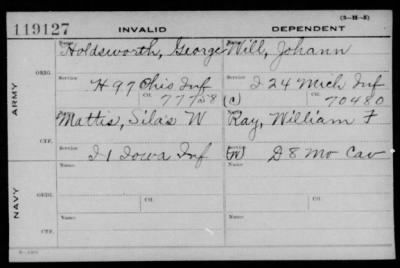 (3-181-5)
119127 INVALID DEPENDENT
Name: Holdsworth, George Name: Will, Johann
ORIG. Service H 97 Ohio Inf Service I 24 Mich Inf
Ctf. 77758 (C) Ctf. 70480
ARMY
Mattis, Silas W Ray, William F
CTF.
I 1 Iowa Inf (W) D 8 Mo Cav
Name: Name:
NAVY
ORIG.
Service Ctf. Service Ctf.
CTF.
Name: Name: